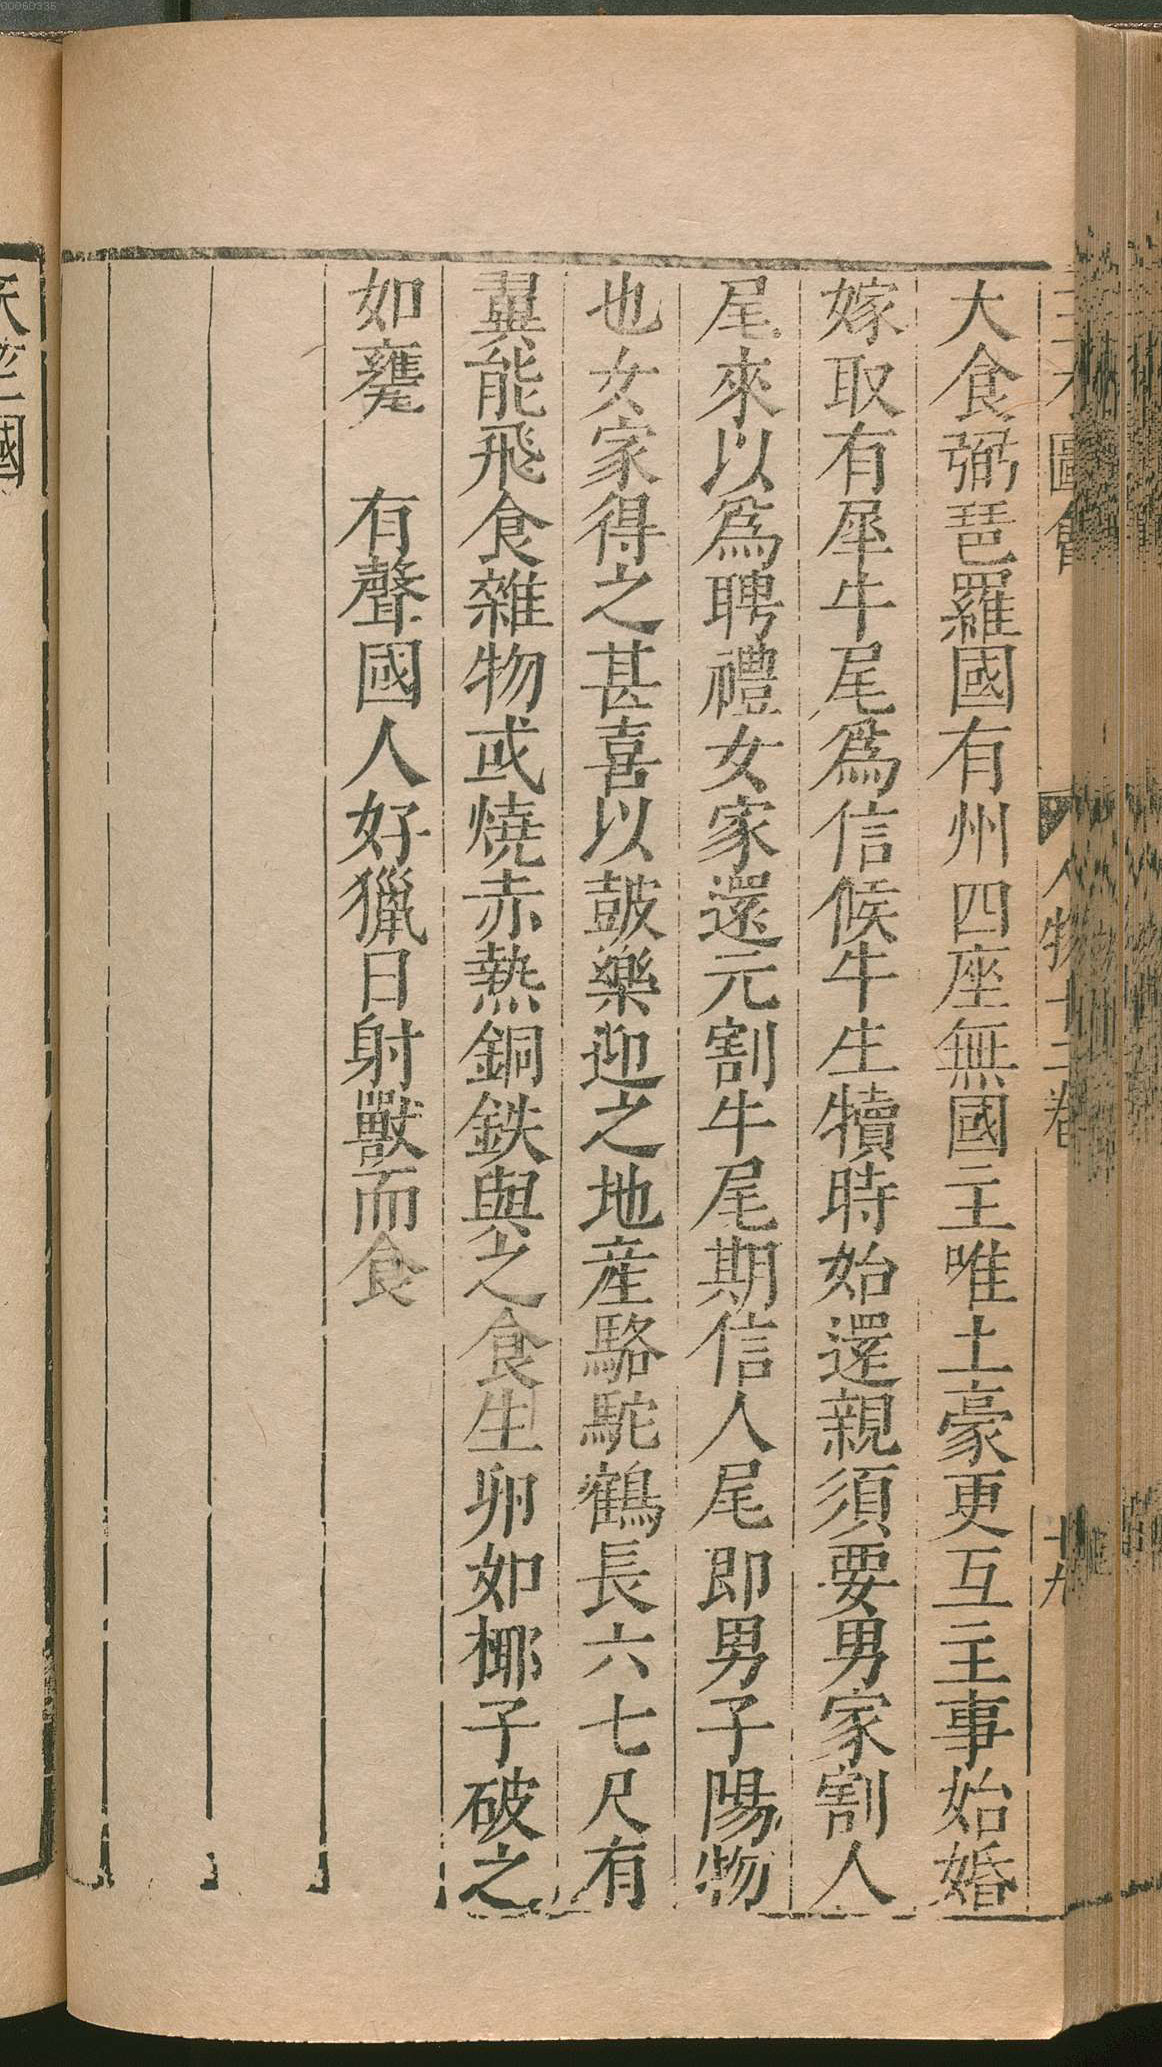 大食弼琶羅國有州四座無國主唯土豪更互主事始婚
嫁取有犀牛尾爲信候牛生犢時始還親須要男家割人
尾來以爲聘禮女家還元割牛尾期信人尾即男子陽物
也女家得之甚喜以皷樂迎之地産駱駝鶴長六七尺有
翼能飛食雜物或燒赤熱銅鉄與之食生卵如椰子破之
如甕 有聲國人好獵日射獸而食
人物十三卷
十九
天竺國
00060336